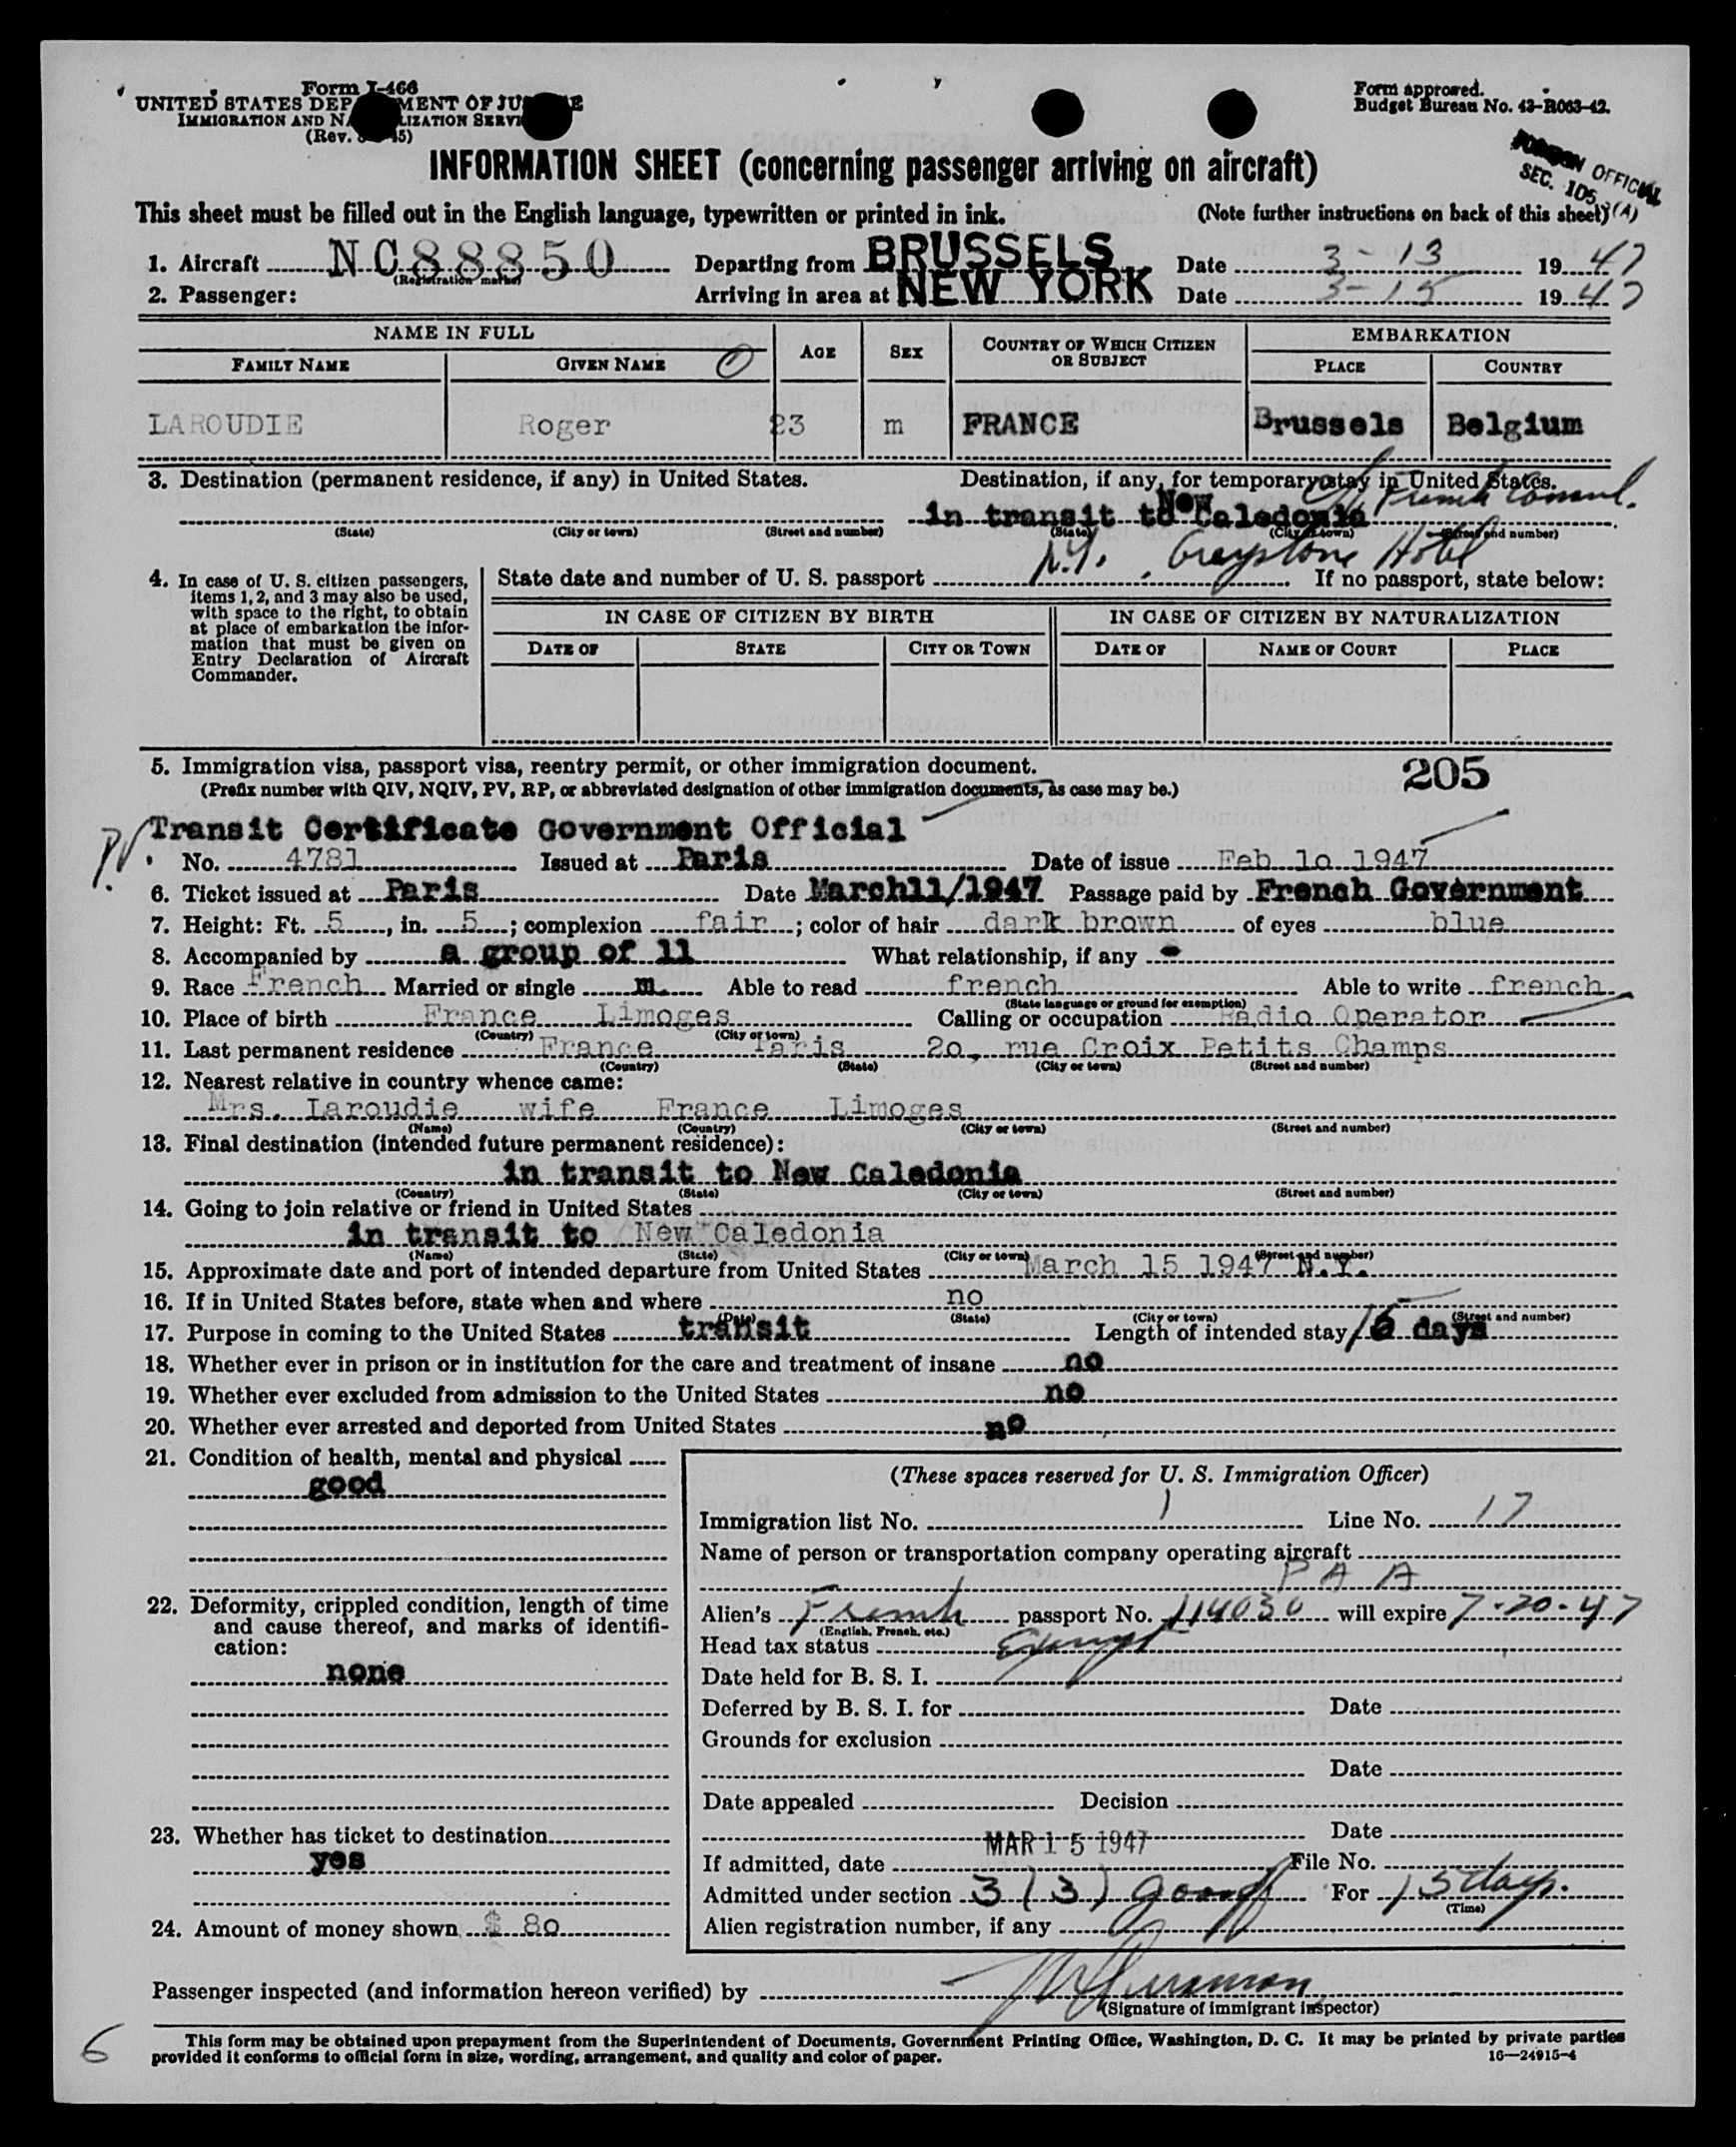 Form I-466
UNITED STATES DEP MENT OF JU E
IMMIGRATION AND NA LIZATION SERVI
(Rev. 45)
Form approved.
Budget Bureau No. 43-R063-42.
OFFICIAL
SEC. 105 (A)
INFORMATION SHEET (concerning passenger arriving on aircraft)
This sheet must be filled out in the English language, typewritten or printed in ink. (Note further instructions on back of this sheet)
1. Aircraft NC88850 Departing from BRUSSELS Date 3-13 1947
(Registration marks)
2. Passenger: Arriving in area at NEW YORK Date 3-15 1947
NAME IN FULL AGE SEX COUNTRY OF WHICH CITIZEN OR SUBJECT EMBARKATION
FAMILY NAME GIVEN NAME PLACE COUNTRY
LAROUDIE Roger 23 m FRANCE Brussels Belgium
3. Destination (permanent residence, if any) in United States. Destination, if any, for temporary stay in United States.
French Consul.
in transit to New Caledonia
(State) (City or town) (Street and number) (State) (City or town) (Street and number)
N.Y. Greystone Hotel
4. In case of U. S. citizen passengers, items 1, 2, and 3 may also be used, with space to the right, to obtain at place of embarkation the information that must be given on Entry Declaration of Aircraft Commander.
State date and number of U. S. passport If no passport, state below:
IN CASE OF CITIZEN BY BIRTH IN CASE OF CITIZEN BY NATURALIZATION
DATE OF STATE CITY OR TOWN DATE OF NAME OF COURT PLACE
5. Immigration visa, passport visa, reentry permit, or other immigration document. 205
(Prefix number with QIV, NQIV, PV, RP, or abbreviated designation of other immigration documents, as case may be.)
Transit Certificate Government Official
P.V.
No. 4781 Issued at Paris Date of issue Feb 10 1947
6. Ticket issued at Paris Date March11/1947 Passage paid by French Government
7. Height: Ft. 5, in. 5; complexion fair; color of hair dark brown of eyes blue
8. Accompanied by a group of 11 What relationship, if any -
9. Race french Married or single m Able to read french Able to write french
(State language or ground for exemption)
10. Place of birth France Limoges Calling or occupation Radio Operator
(Country) (City or town)
11. Last permanent residence France Paris 20, rue Croix Petits Champs
(Country) (State) (City or town) (Street and number)
12. Nearest relative in country whence came:
Mrs. Laroudie wife France Limoges
(Name) (Country) (City or town) (Street and number)
13. Final destination (intended future permanent residence):
in transit to New Caledonia
(Country) (State) (City or town) (Street and number)
14. Going to join relative or friend in United States
in transit to New Caledonia
(Name) (State) (City or town) (Street and number)
15. Approximate date and port of intended departure from United States March 15 1947 N.Y.
16. If in United States before, state when and where no
(Date) (State) (City or town) (Street and number)
17. Purpose in coming to the United States transit Length of intended stay 15 days
18. Whether ever in prison or in institution for the care and treatment of insane no
19. Whether ever excluded from admission to the United States no
20. Whether ever arrested and deported from United States no
21. Condition of health, mental and physical
good
22. Deformity, crippled condition, length of time and cause thereof, and marks of identification:
none
23. Whether has ticket to destination
yes
24. Amount of money shown $ 80
(These spaces reserved for U. S. Immigration Officer)
Immigration list No. 1 Line No. 17
Name of person or transportation company operating aircraft
P A A
Alien's French passport No. 114030 will expire 7-20-47
(English, French, etc.)
Head tax status Exempt
Date held for B. S. I.
Deferred by B. S. I. for Date
Grounds for exclusion
Date
Date appealed Decision
Date
MAR 15 1947
If admitted, date File No.
Admitted under section 3(3) For 15 days.
(Time)
Alien registration number, if any
Passenger inspected (and information hereon verified) by
(Signature of immigrant inspector)
6
This form may be obtained upon prepayment from the Superintendent of Documents, Government Printing Office, Washington, D. C. It may be printed by private parties
provided it conforms to official form in size, wording, arrangement, and quality and color of paper. 16—24915-4